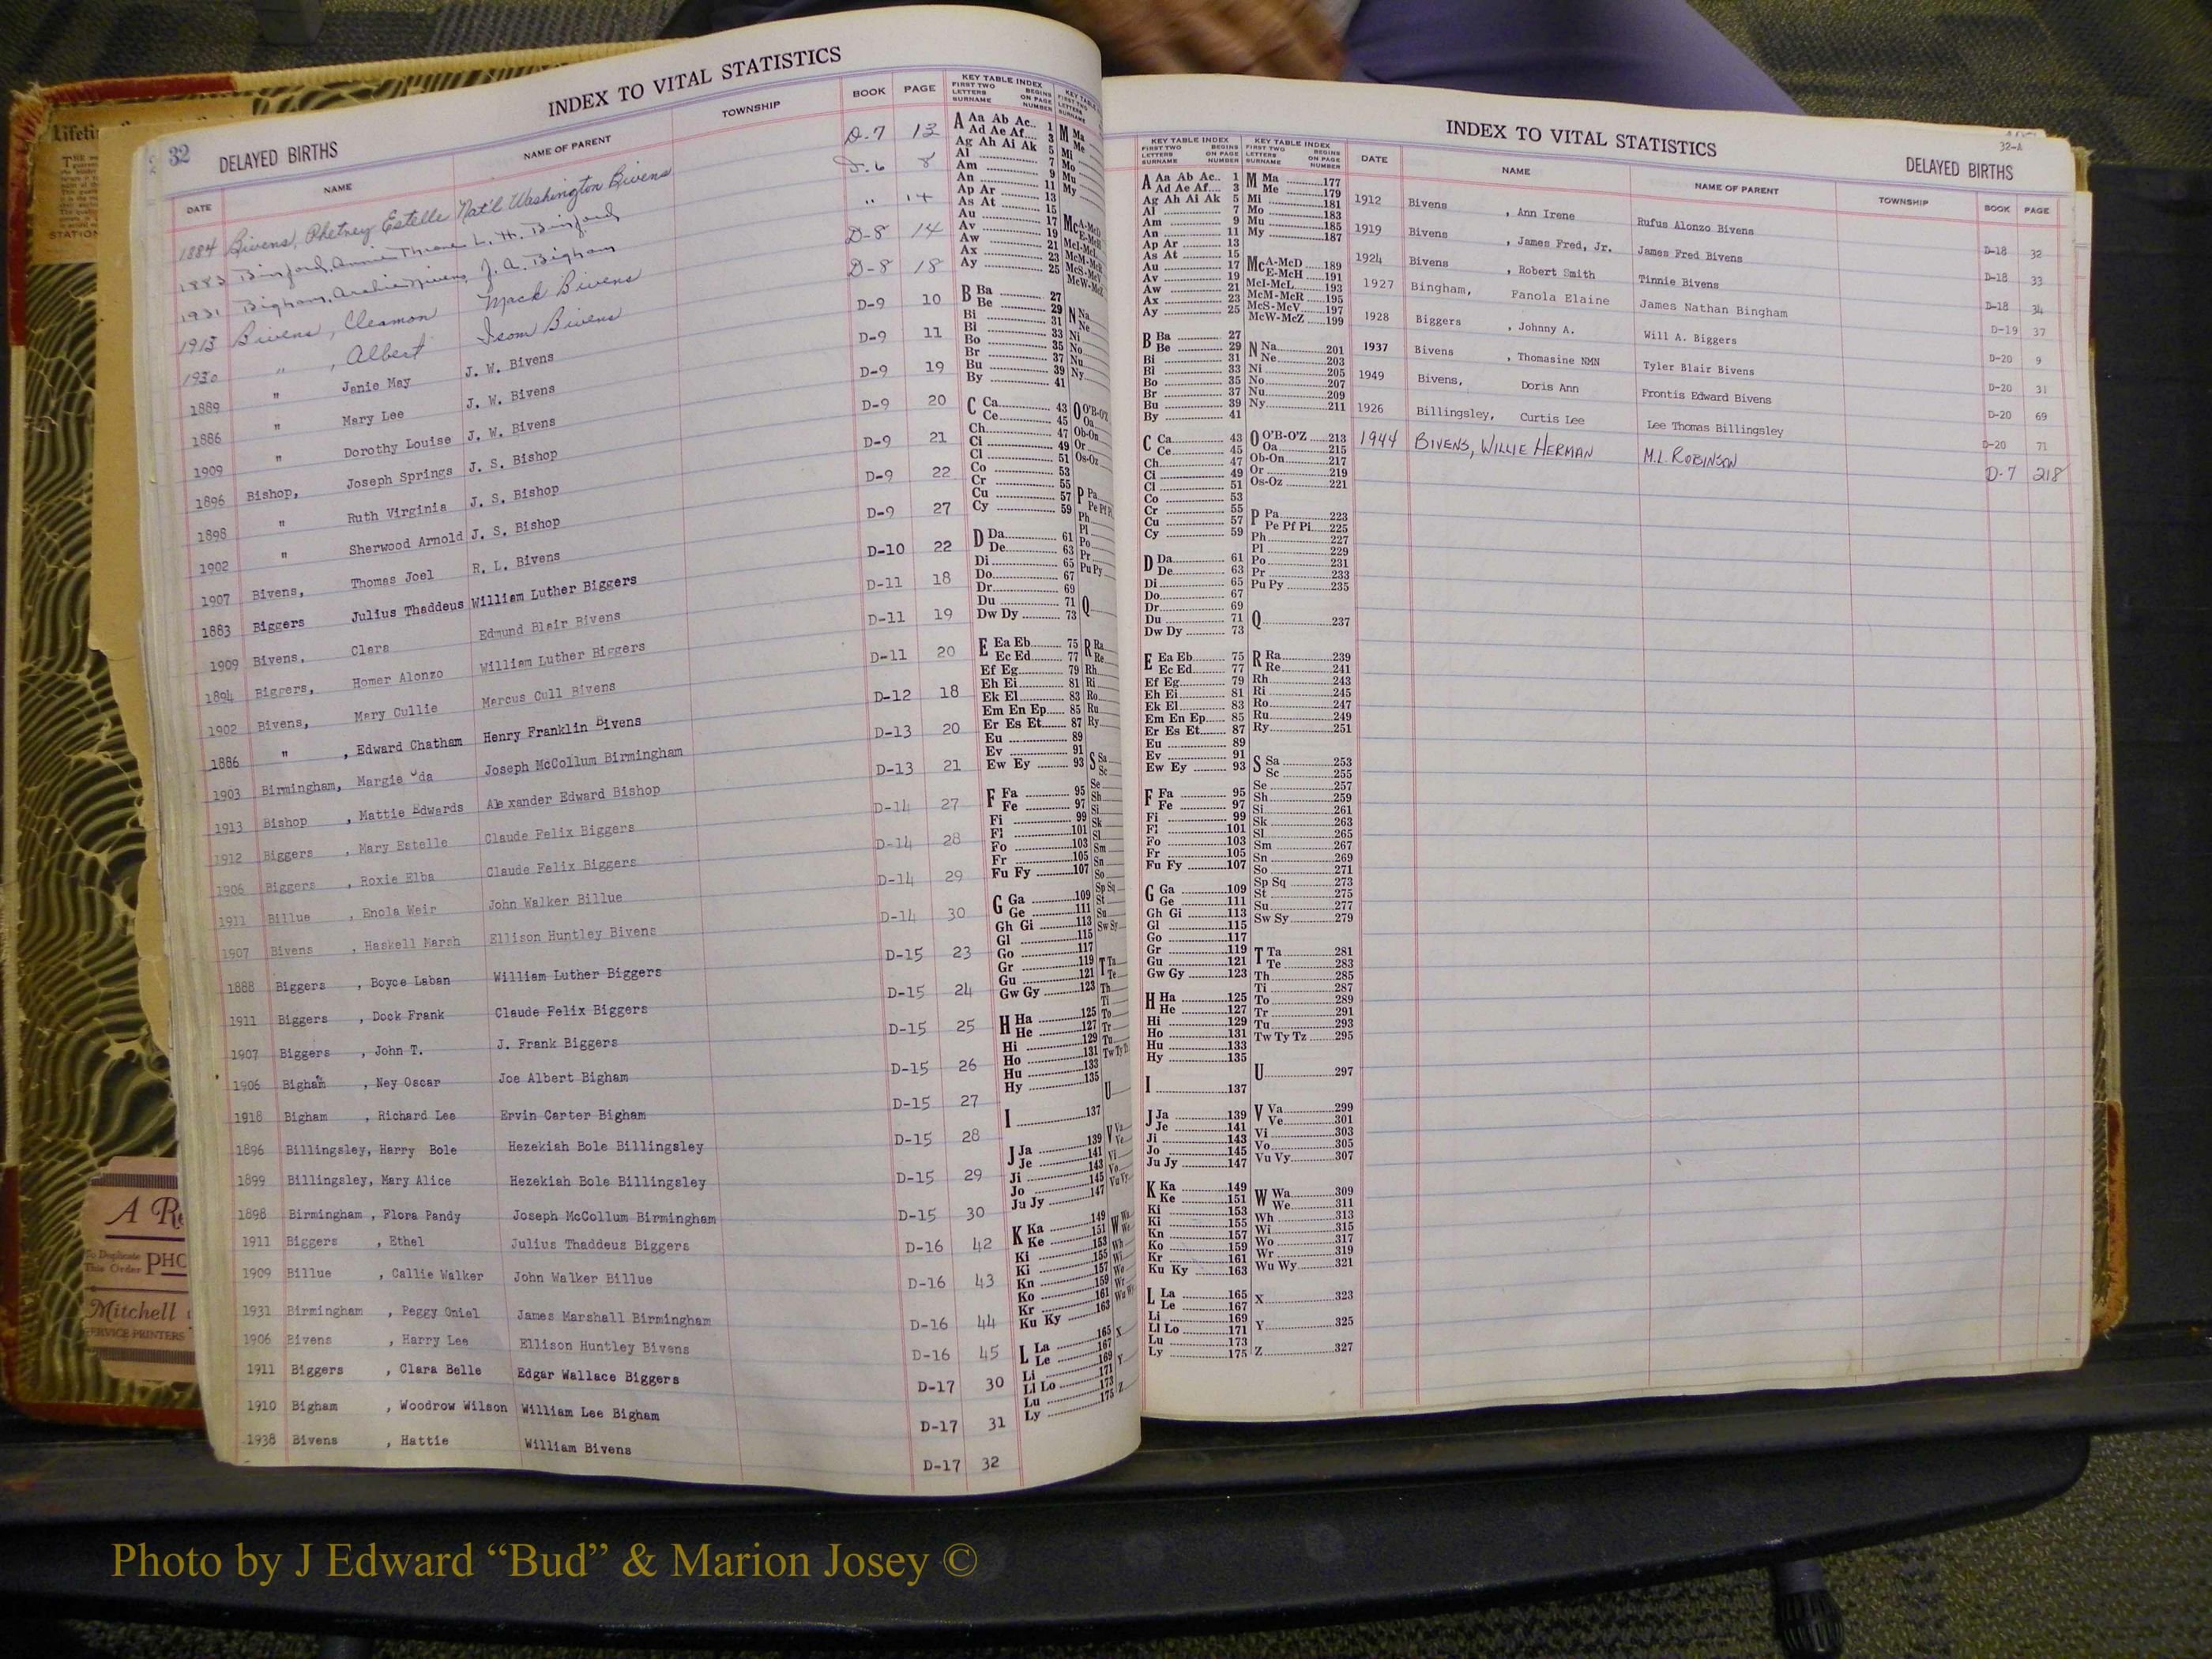 32
DELAYED BIRTHS
INDEX TO VITAL STATISTICS
DATE NAME NAME OF PARENT TOWNSHIP BOOK PAGE
1884 Bivens, Phetney Estelle Nat'l Washington Bivens D-7 13
1883 Binford, Annie L. H. Binford D-6 8
1931 Bigham, Archie J. A. Bigham " 14
1913 Bivens, Cleamon Mack Bivens D-8 14
1930 " , Albert Isom Bivens D-8 18
1889 " Janie May J. W. Bivens D-9 10
1886 " Mary Lee J. W. Bivens D-9 11
1909 " Dorothy Louise J. W. Bivens D-9 19
1896 Bishop, Joseph Springs J. S. Bishop D-9 20
1898 " Ruth Virginia J. S. Bishop D-9 21
1902 " Sherwood Arnold J. S. Bishop D-9 22
1907 Bivens, Thomas Joel R. L. Bivens D-9 27
1883 Biggers Julius Thaddeus William Luther Biggers D-10 22
1909 Bivens, Clara Edmund Blair Bivens D-11 18
1894 Biggers, Homer Alonzo William Luther Biggers D-11 19
1902 Bivens, Mary Cullie Marcus Cull Bivens D-11 20
1886 " , Edward Chatham Henry Franklin Bivens D-12 18
1903 Birmingham, Margie Oda Joseph McCollum Birmingham D-13 20
1913 Bishop , Mattie Edwards Alexander Edward Bishop D-13 21
1912 Biggers , Mary Estelle Claude Felix Biggers D-14 27
1906 Biggers , Roxie Elba Claude Felix Biggers D-14 28
1911 Billue , Enola Weir John Walker Billue D-14 29
1907 Bivens , Haskell Marsh Ellison Huntley Bivens D-14 30
1888 Biggers , Boyce Laban William Luther Biggers D-15 23
1911 Biggers , Dock Frank Claude Felix Biggers D-15 24
1907 Biggers , John T. J. Frank Biggers D-15 25
1906 Bigham , Ney Oscar Joe Albert Bigham D-15 26
1918 Bigham , Richard Lee Ervin Carter Bigham D-15 27
1896 Billingsley, Harry Bole Hezekiah Bole Billingsley D-15 28
1899 Billingsley, Mary Alice Hezekiah Bole Billingsley D-15 29
1898 Birmingham , Flora Pandy Joseph McCollum Birmingham D-15 30
1911 Biggers , Ethel Julius Thaddeus Biggers D-16 42
1909 Billue , Callie Walker John Walker Billue D-16 43
1931 Birmingham , Peggy Oniel James Marshall Birmingham D-16 44
1906 Bivens , Harry Lee Ellison Huntley Bivens D-16 45
1911 Biggers , Clara Belle Edgar Wallace Biggers D-17 30
1910 Bigham , Woodrow Wilson William Lee Bigham D-17 31
1938 Bivens , Hattie William Bivens D-17 32
INDEX TO VITAL STATISTICS
32-A
DELAYED BIRTHS
DATE NAME NAME OF PARENT TOWNSHIP BOOK PAGE
1912 Bivens , Ann Irene Rufus Alonzo Bivens D-18 32
1919 Bivens , James Fred, Jr. James Fred Bivens D-18 33
1924 Bivens , Robert Smith Tinnie Bivens D-18 34
1927 Bingham, Fanola Elaine James Nathan Bingham D-19 37
1928 Biggers , Johnny A. Will A. Biggers D-20 9
1937 Bivens , Thomasine NMN Tyler Blair Bivens D-20 31
1949 Bivens, Doris Ann Frontis Edward Bivens D-20 69
1926 Billingsley, Curtis Lee Lee Thomas Billingsley D-20 71
1944 BIVENS, WILLIE HERMAN M.L. ROBINSON D-7 218
KEY TABLE INDEX KEY TABLE INDEX
FIRST TWO LETTERS SURNAME BEGINS ON PAGE NUMBER FIRST TWO LETTERS SURNAME BEGINS ON PAGE NUMBER
A Aa Ab Ac.. 1 M Ma 177
Ad Ae Af.... 3 Me 179
Ag Ah Ai Ak 5 Mi 181
Al 7 Mo 183
Am 9 Mu 185
An 11 My 187
Ap Ar 13
As At 15
Au 17 Mc A-McD 189
Av 19 E-McH 191
Aw 21 McI-McL 193
Ax 23 McM-McR 195
Ay 25 McS-McV 197
McW-McZ 199
B Ba 27
Be 29 N Na 201
Bi 31 Ne 203
Bl 33 Ni 205
Bo 35 No 207
Br 37 Nu 209
Bu 39 Ny 211
By 41
C Ca 43 O O'B-O'Z 213
Ce 45 Oa 215
Ch 47 Ob-On 217
Ci 49 Or 219
Cl 51 Os-Oz 221
Co 53
Cr 55 P Pa 223
Cu 57 Pe Pf Pi 225
Cy 59 Ph 227
Pl 229
D Da 61 Po 231
De 63 Pr 233
Di 65 Pu Py 235
Do 67
Dr 69
Du 71 Q 237
Dw Dy 73
E Ea Eb 75 R Ra 239
Ec Ed 77 Re 241
Ef Eg 79 Rh 243
Eh Ei 81 Ri 245
Ek El 83 Ro 247
Em En Ep 85 Ru 249
Er Es Et 87 Ry 251
Eu 89
Ev 91
Ew Ey 93 S Sa 253
Sc 255
F Fa 95 Se 257
Fe 97 Sh 259
Fi 99 Si 261
Fl 101 Sk 263
Fo 103 Sl 265
Fr 105 Sm 267
Fu Fy 107 Sn 269
So 271
G Ga 109 Sp Sq 273
Ge 111 St 275
Gh Gi 113 Su 277
Gl 115 Sw Sy 279
Go 117
Gr 119 T Ta 281
Gu 121 Te 283
Gw Gy 123 Th 285
Ti 287
H Ha 125 To 289
He 127 Tr 291
Hi 129 Tu 293
Ho 131 Tw Ty Tz 295
Hu 133
Hy 135
U 297
I 137
J Ja 139 V Va 299
Je 141 Ve 301
Ji 143 Vi 303
Jo 145 Vo 305
Ju Jy 147 Vu Vy 307
K Ka 149 W Wa 309
Ke 151 We 311
Ki 153 Wh 313
Ki 155 Wi 315
Kn 157 Wo 317
Ko 159 Wr 319
Kr 161 Wu Wy 321
Ku Ky 163
L La 165 X 323
Le 167
Li 169
Ll Lo 171 Y 325
Lu 173
Ly 175 Z 327
A Re
To Duplicate This Order PHO
Mitchell
SERVICE PRINTERS
Photo by J Edward “Bud” & Marion Josey ©